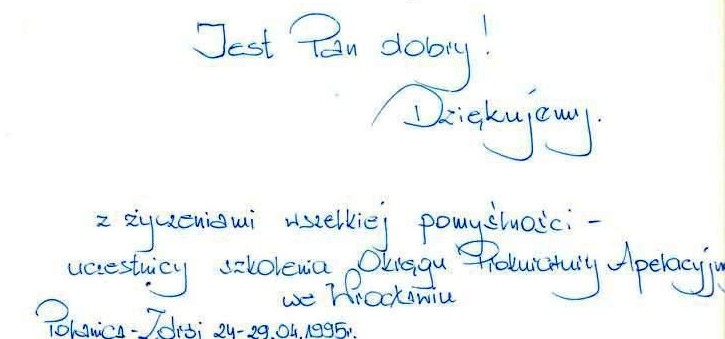 Jest Pan dobry!
Dziękujemy.
z życzeniami wszelkiej pomyślności -
uczestnicy szkolenia Okręgu Prokuratury Apelacyjn
we Wrocławiu
Polanica-Zdrój 24-29.04.1995r.